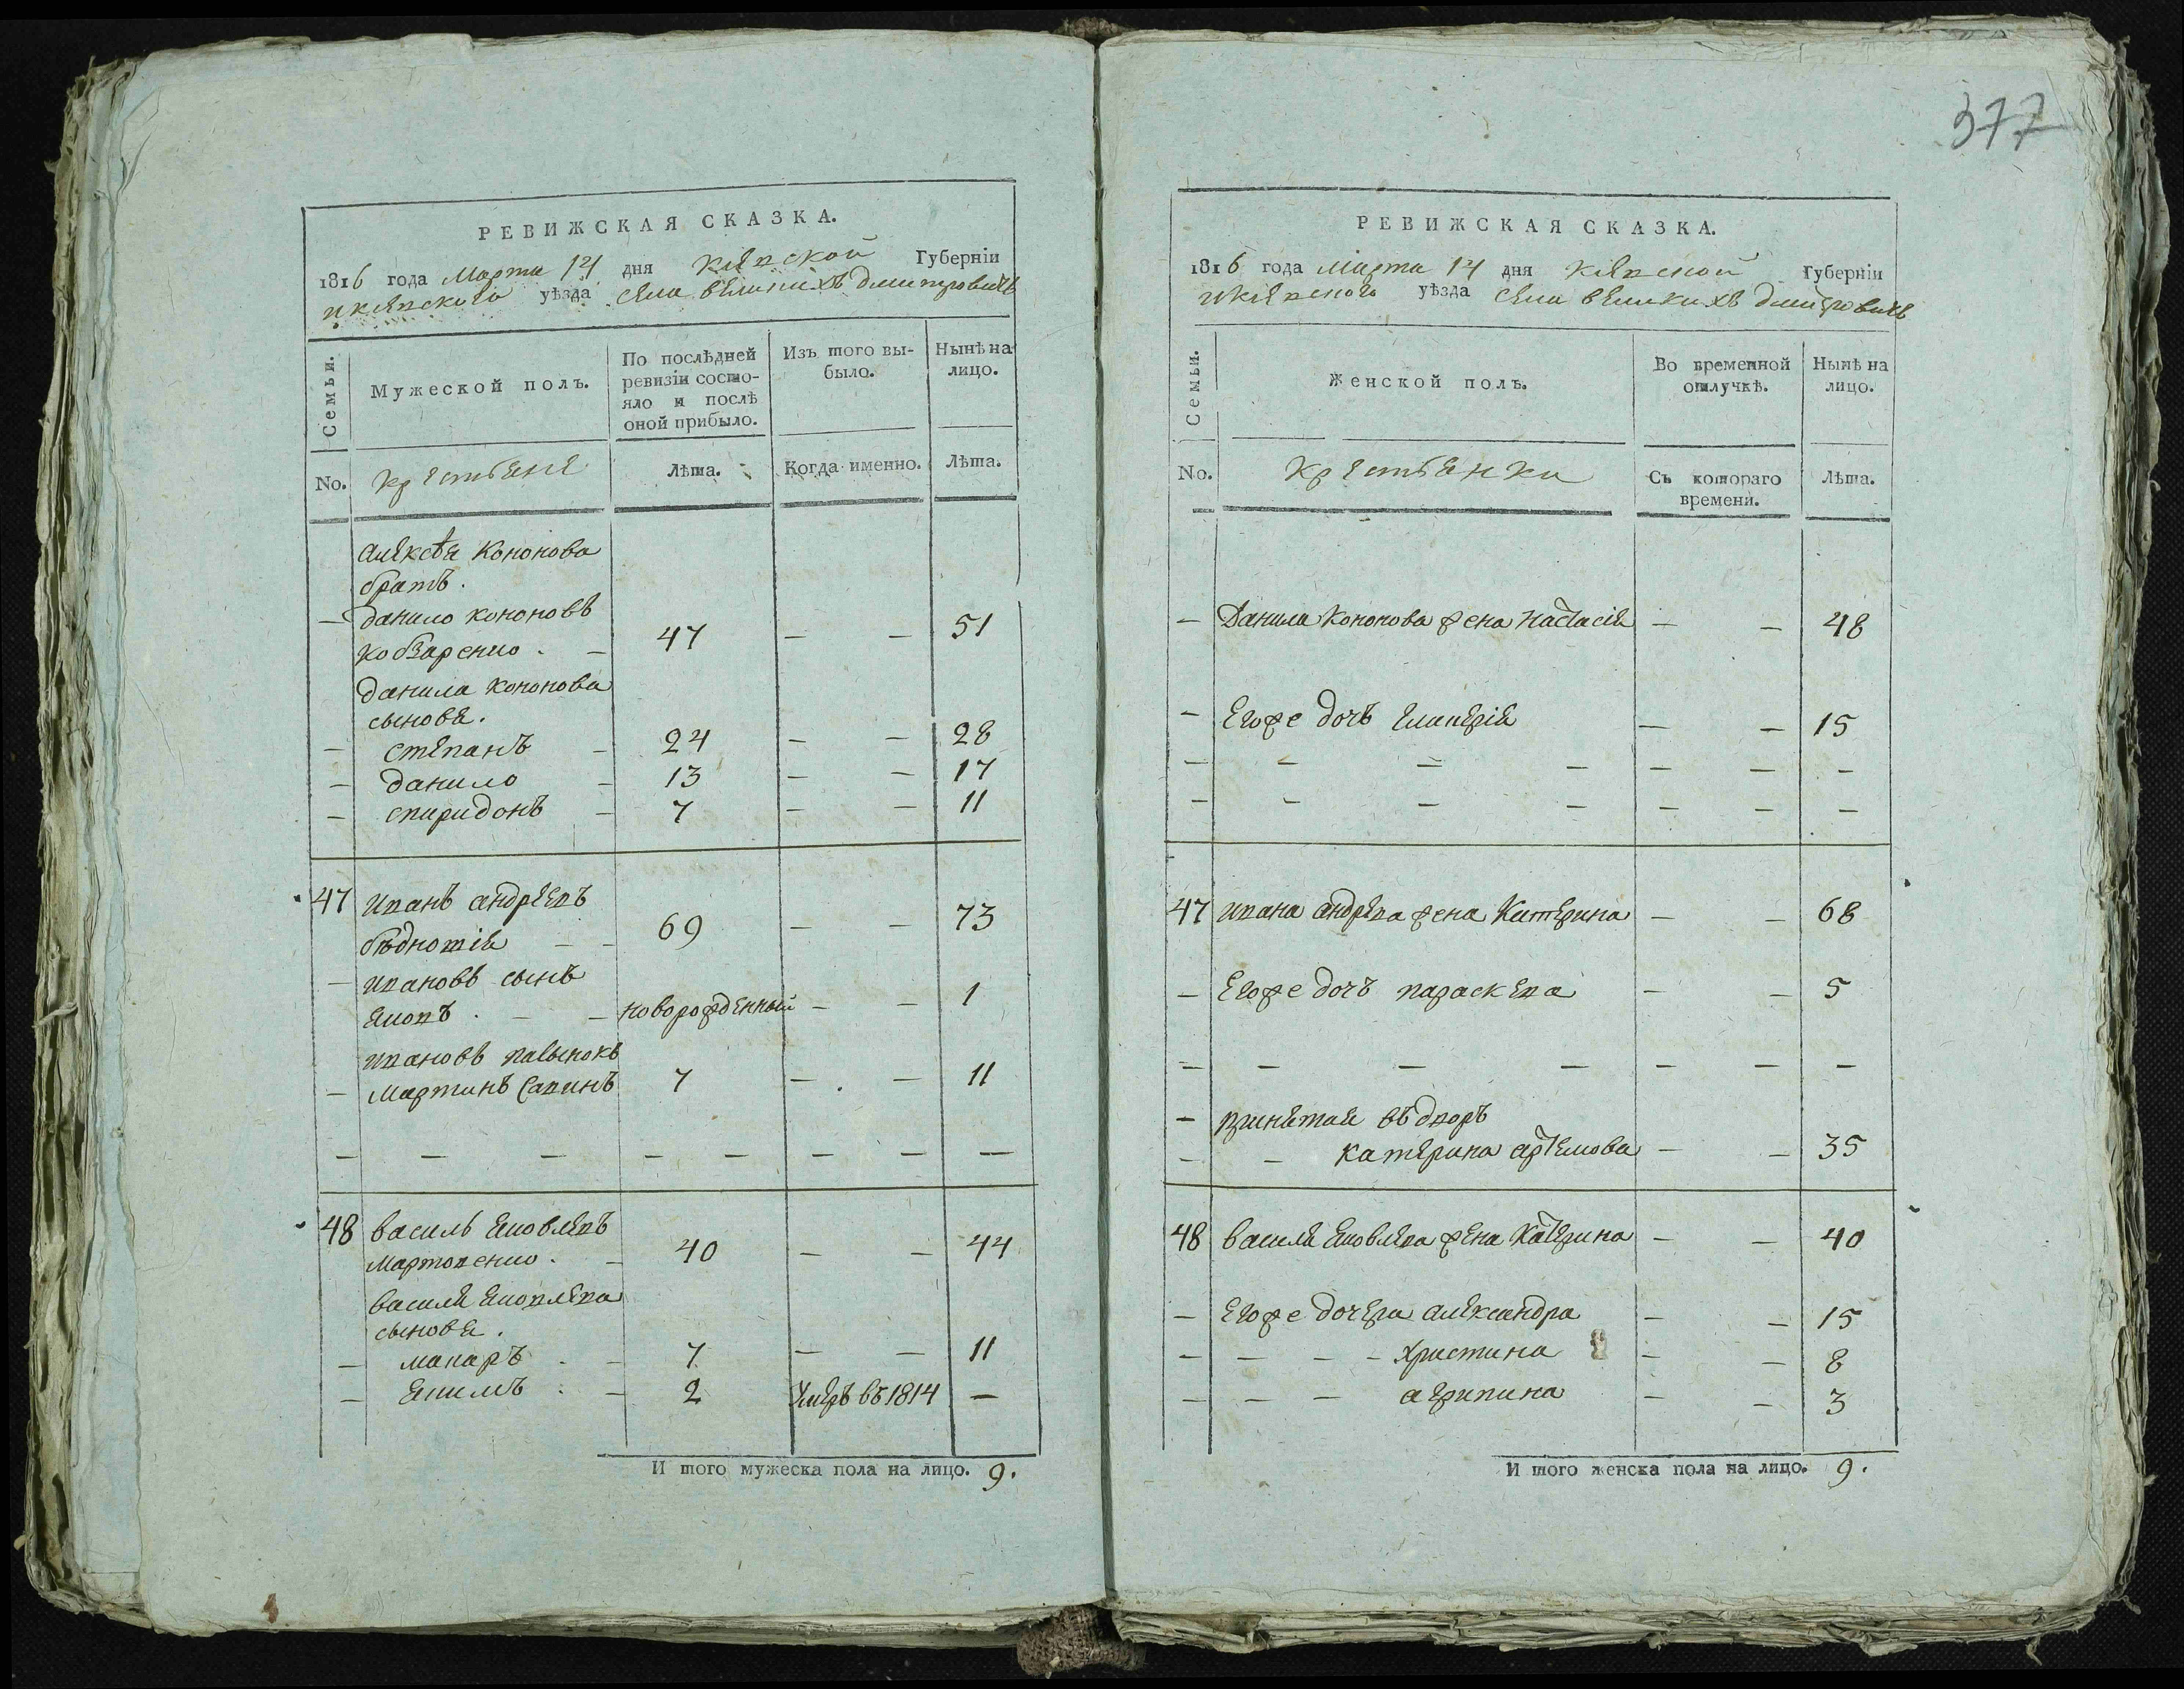 377
РЕВИЖСКАЯ СКАЗКА.
1816 года Марта 14 дня Кіевской Губерніи
и кіевского уѣзда села великихъ дмитровичъ
Семьи.
Мужеской полъ.
По послѣдней ревизіи состояло и послѣ оной прибыло.
Изъ того выбыло.
Нынѣ на лицо.
No.
крестьяне
Лѣта.
Когда именно.
Лѣта.
Алексѣя Кононова
братъ.
— данило кононовъ
кобзаренко . — 47 — — 51
данила кононова
сыновя.
— степанъ — 24 — — 28
— данило — 13 — — 17
— спиридонъ — 7 — — 11
47 иванъ андреевъ
бѣднотія — — 69 — — 73
— ивановъ сынъ
яковъ . — — новорожденный — — 1
ивановъ пасынокъ
— мартинъ Савинъ 7 — — 11
— — — — — — — —
48 василь яковлевъ
мартовенко . — 40 — — 44
василя яковлева
сыновя.
— макаръ . — 7 — — 11
— якимъ . — 2 Умеръ въ 1814 —
И того мужеска пола на лицо. 9.
РЕВИЖСКАЯ СКАЗКА.
1816 года марта 14 дня кіевской Губерніи
и кіевского уѣзда села великихъ дмитровичъ
Семьи.
Женской полъ.
Во временной отлучкѣ.
Нынѣ на лицо.
No.
крестьянки
Съ котораго времени.
Лѣта.
— Данила Кононова жена Настасія — — 48
— Егоже дочъ гликерія — — 15
— — — — — — —
— — — — — — —
47 ивана андрева жена Катерина — — 68
— Егоже дочъ параскева — — 5
— — — — — — —
— принятая въ дворъ
— — катерина артемова — — 35
48 василя яковлева жена Катерина — — 40
— Егоже дочера александра — — 15
— — — — христина — — 8
— — — агрипина — — 3
И того женска пола на лицо. 9.